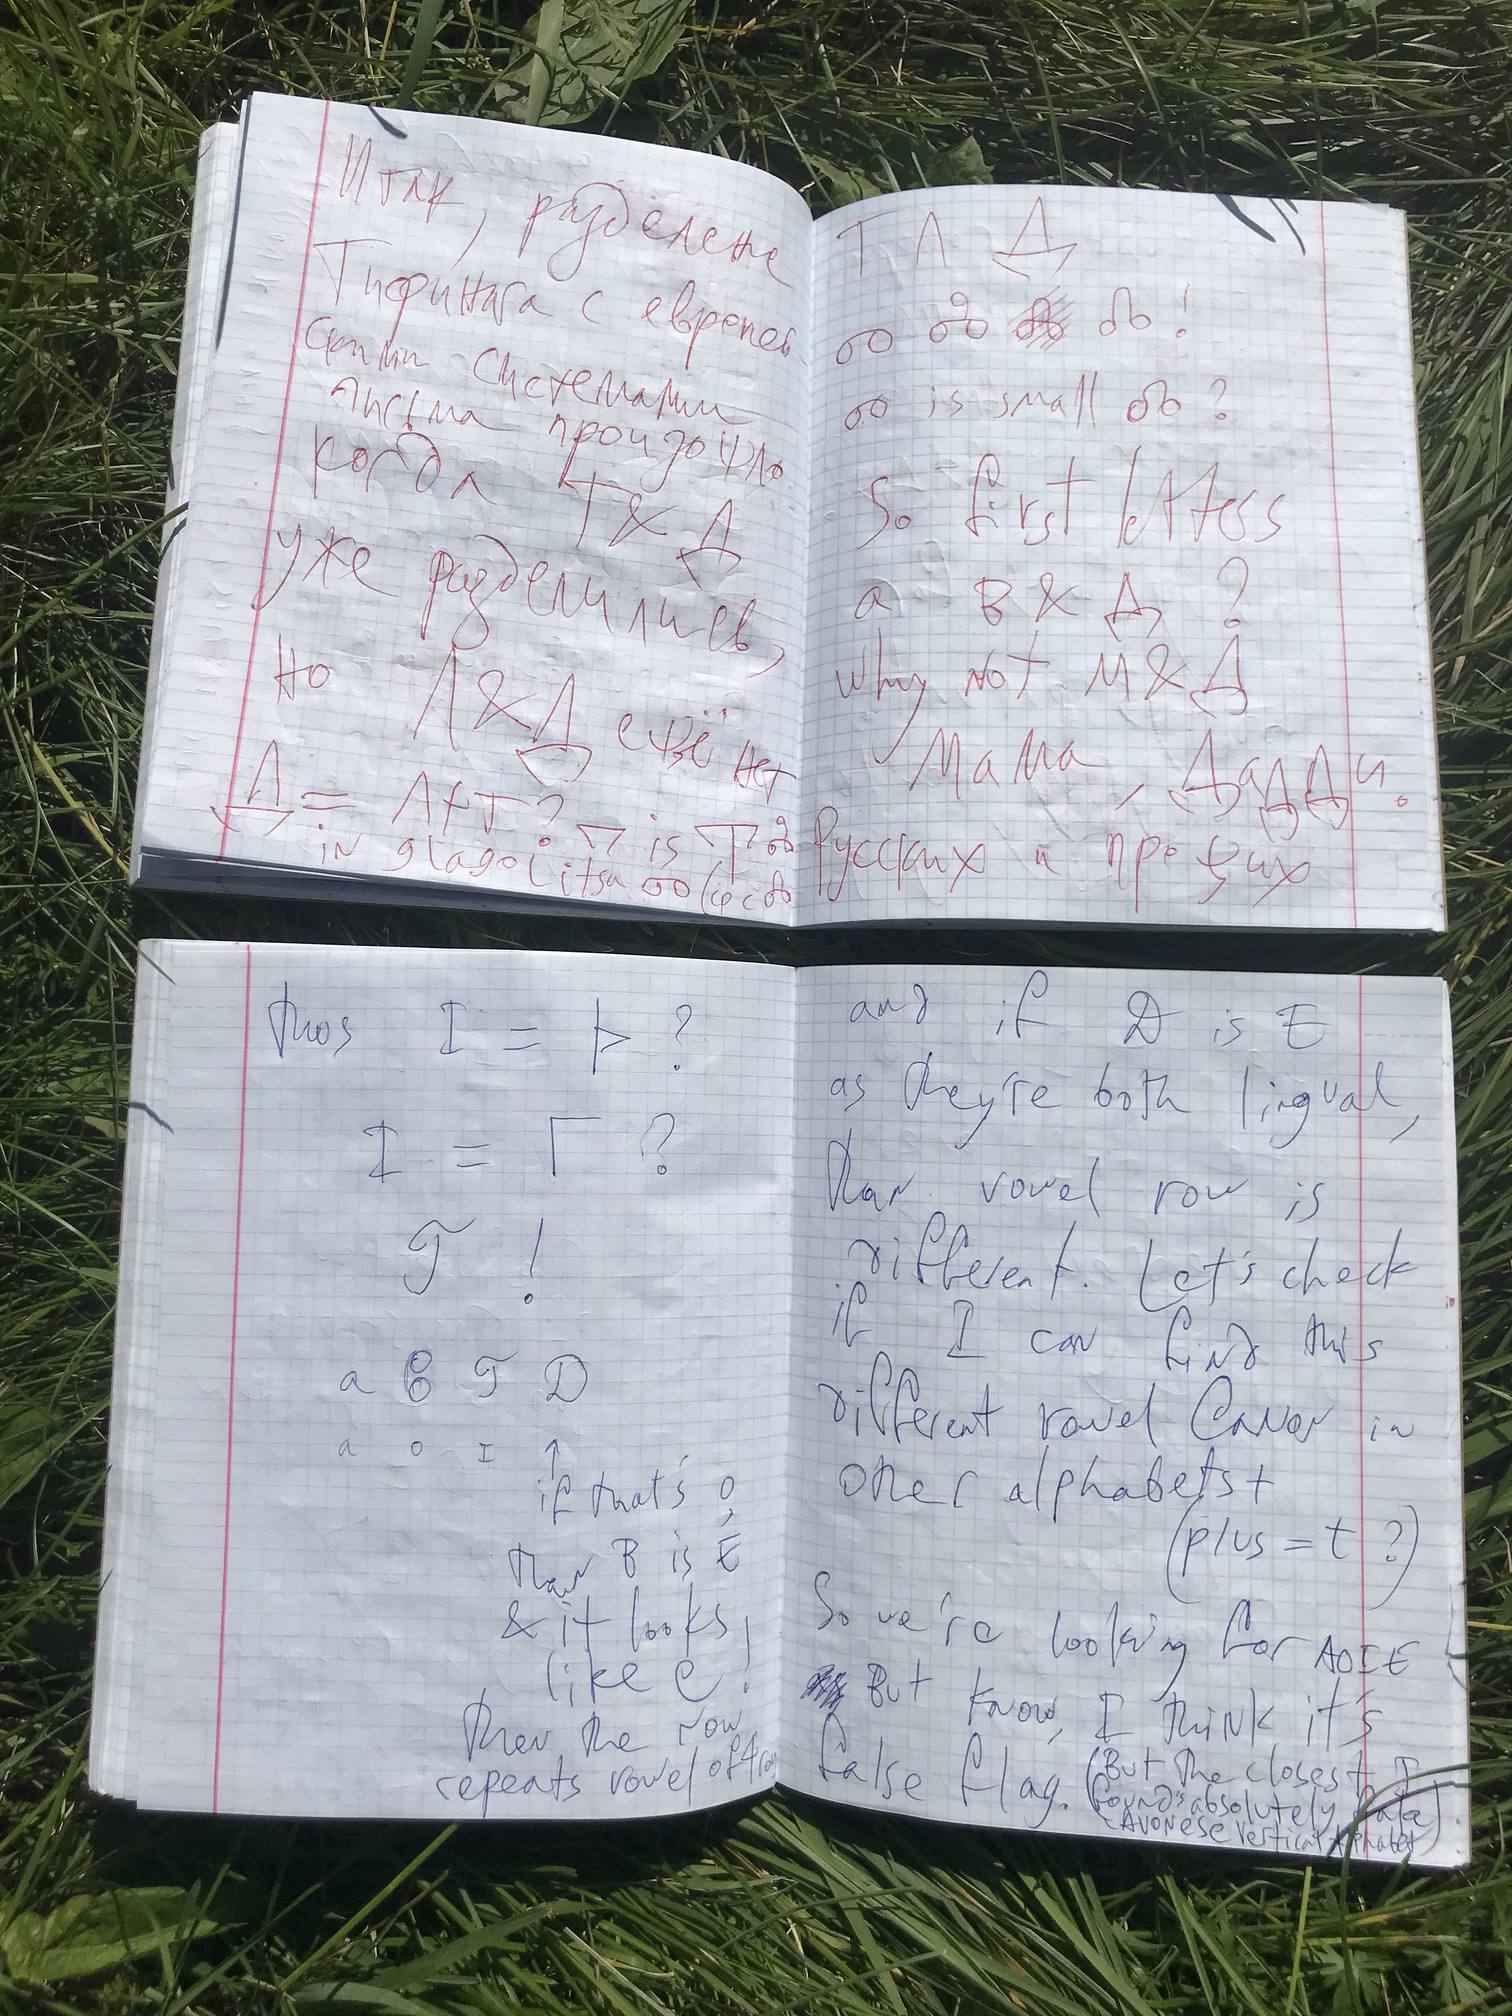 Итак, разделене
Тифинага с европей
скими системами
письма произошло
когда Т & Д
уже разделились,
но Л & Д ещё нет
Д = Л + Т ? is
in glagolitsa
Т Л Д
is small ?
So first letters
a B & Д ?
why not M & Д
Мама, Дадди.
Русских и прочих
thos I = ?
I = Г ?
!
a D
a o I ↑
if that's o,
than B is E
& it looks
like e!
then the row
repeats vowel of
and if D is E
as they're both lingual,
than vowel row is
different. Let's check
if I can find this
different vowel Canon in
other alphabets+
(plus = t ?)
So we're looking for AOIE
But know, I think it's
false flag. (But the closest I
found's absolutely fake
Avonese vertical Alphabet)